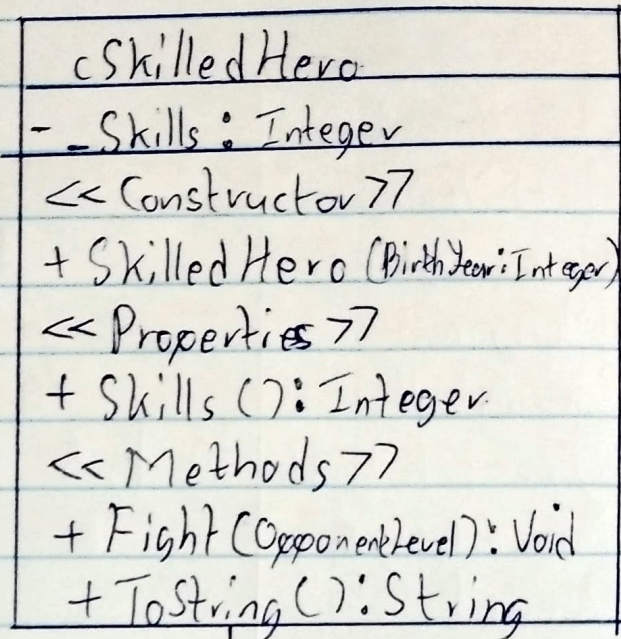 cSkilledHero
- _Skills : Integer
<< Constructor >>
+ SkilledHero (BirthYear : Integer)
<< Properties >>
+ Skills () : Integer
<< Methods >>
+ Fight (OpponentLevel) : Void
+ ToString () : String